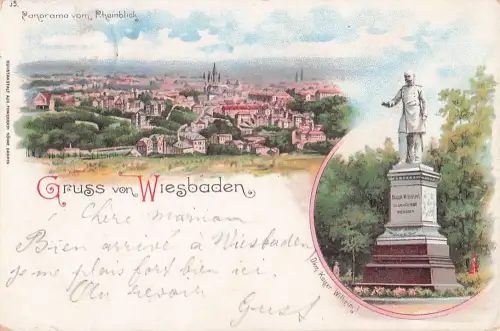 15.
Panorama vom Rheinblick
Gruss von Wiesbaden
Chere Maman
Bien arrivé à Wiesbaden
je me plais fort bien ici.
Au revoir
Gust
Denk. Kaiser Wilhelm I.